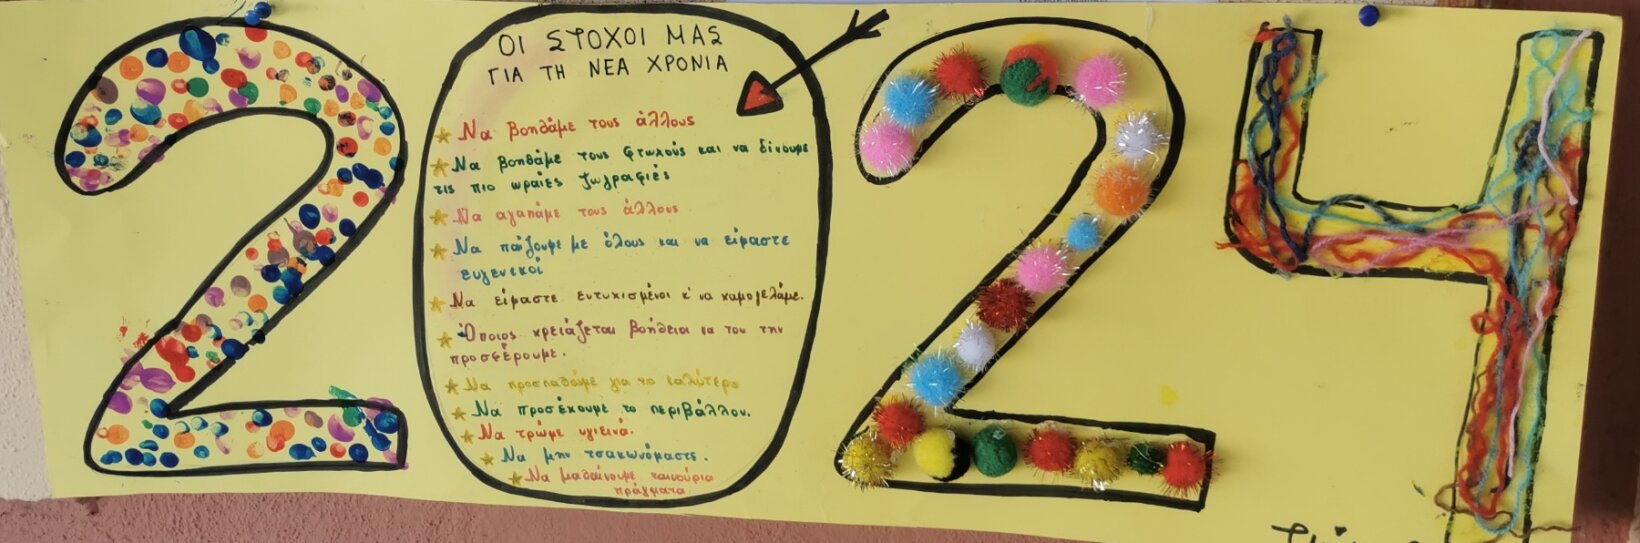 ΟΙ ΣΤΟΧΟΙ ΜΑΣ
ΓΙΑ ΤΗ ΝΕΑ ΧΡΟΝΙΑ
Να βοηθάμε τους άλλους
Να βοηθάμε τους φτωχούς και να δίνουμε
τις πιο ωραίες ζωγραφιές
Να αγαπάμε τους άλλους
Να παίζουμε με όλους και να είμαστε
ευγενικοί
Να είμαστε ευτυχισμένοι κ' να χαμογελάμε.
Όποιος χρειάζεται βοήθεια να του την
προσφέρουμε.
Να προσπαθάμε για το καλύτερο
Να προσέχουμε το περιβάλλον.
Να τρώμε υγιεινά.
Να μην τσακωνόμαστε.
Να μαθαίνουμε καινούρια
πράγματα
2024